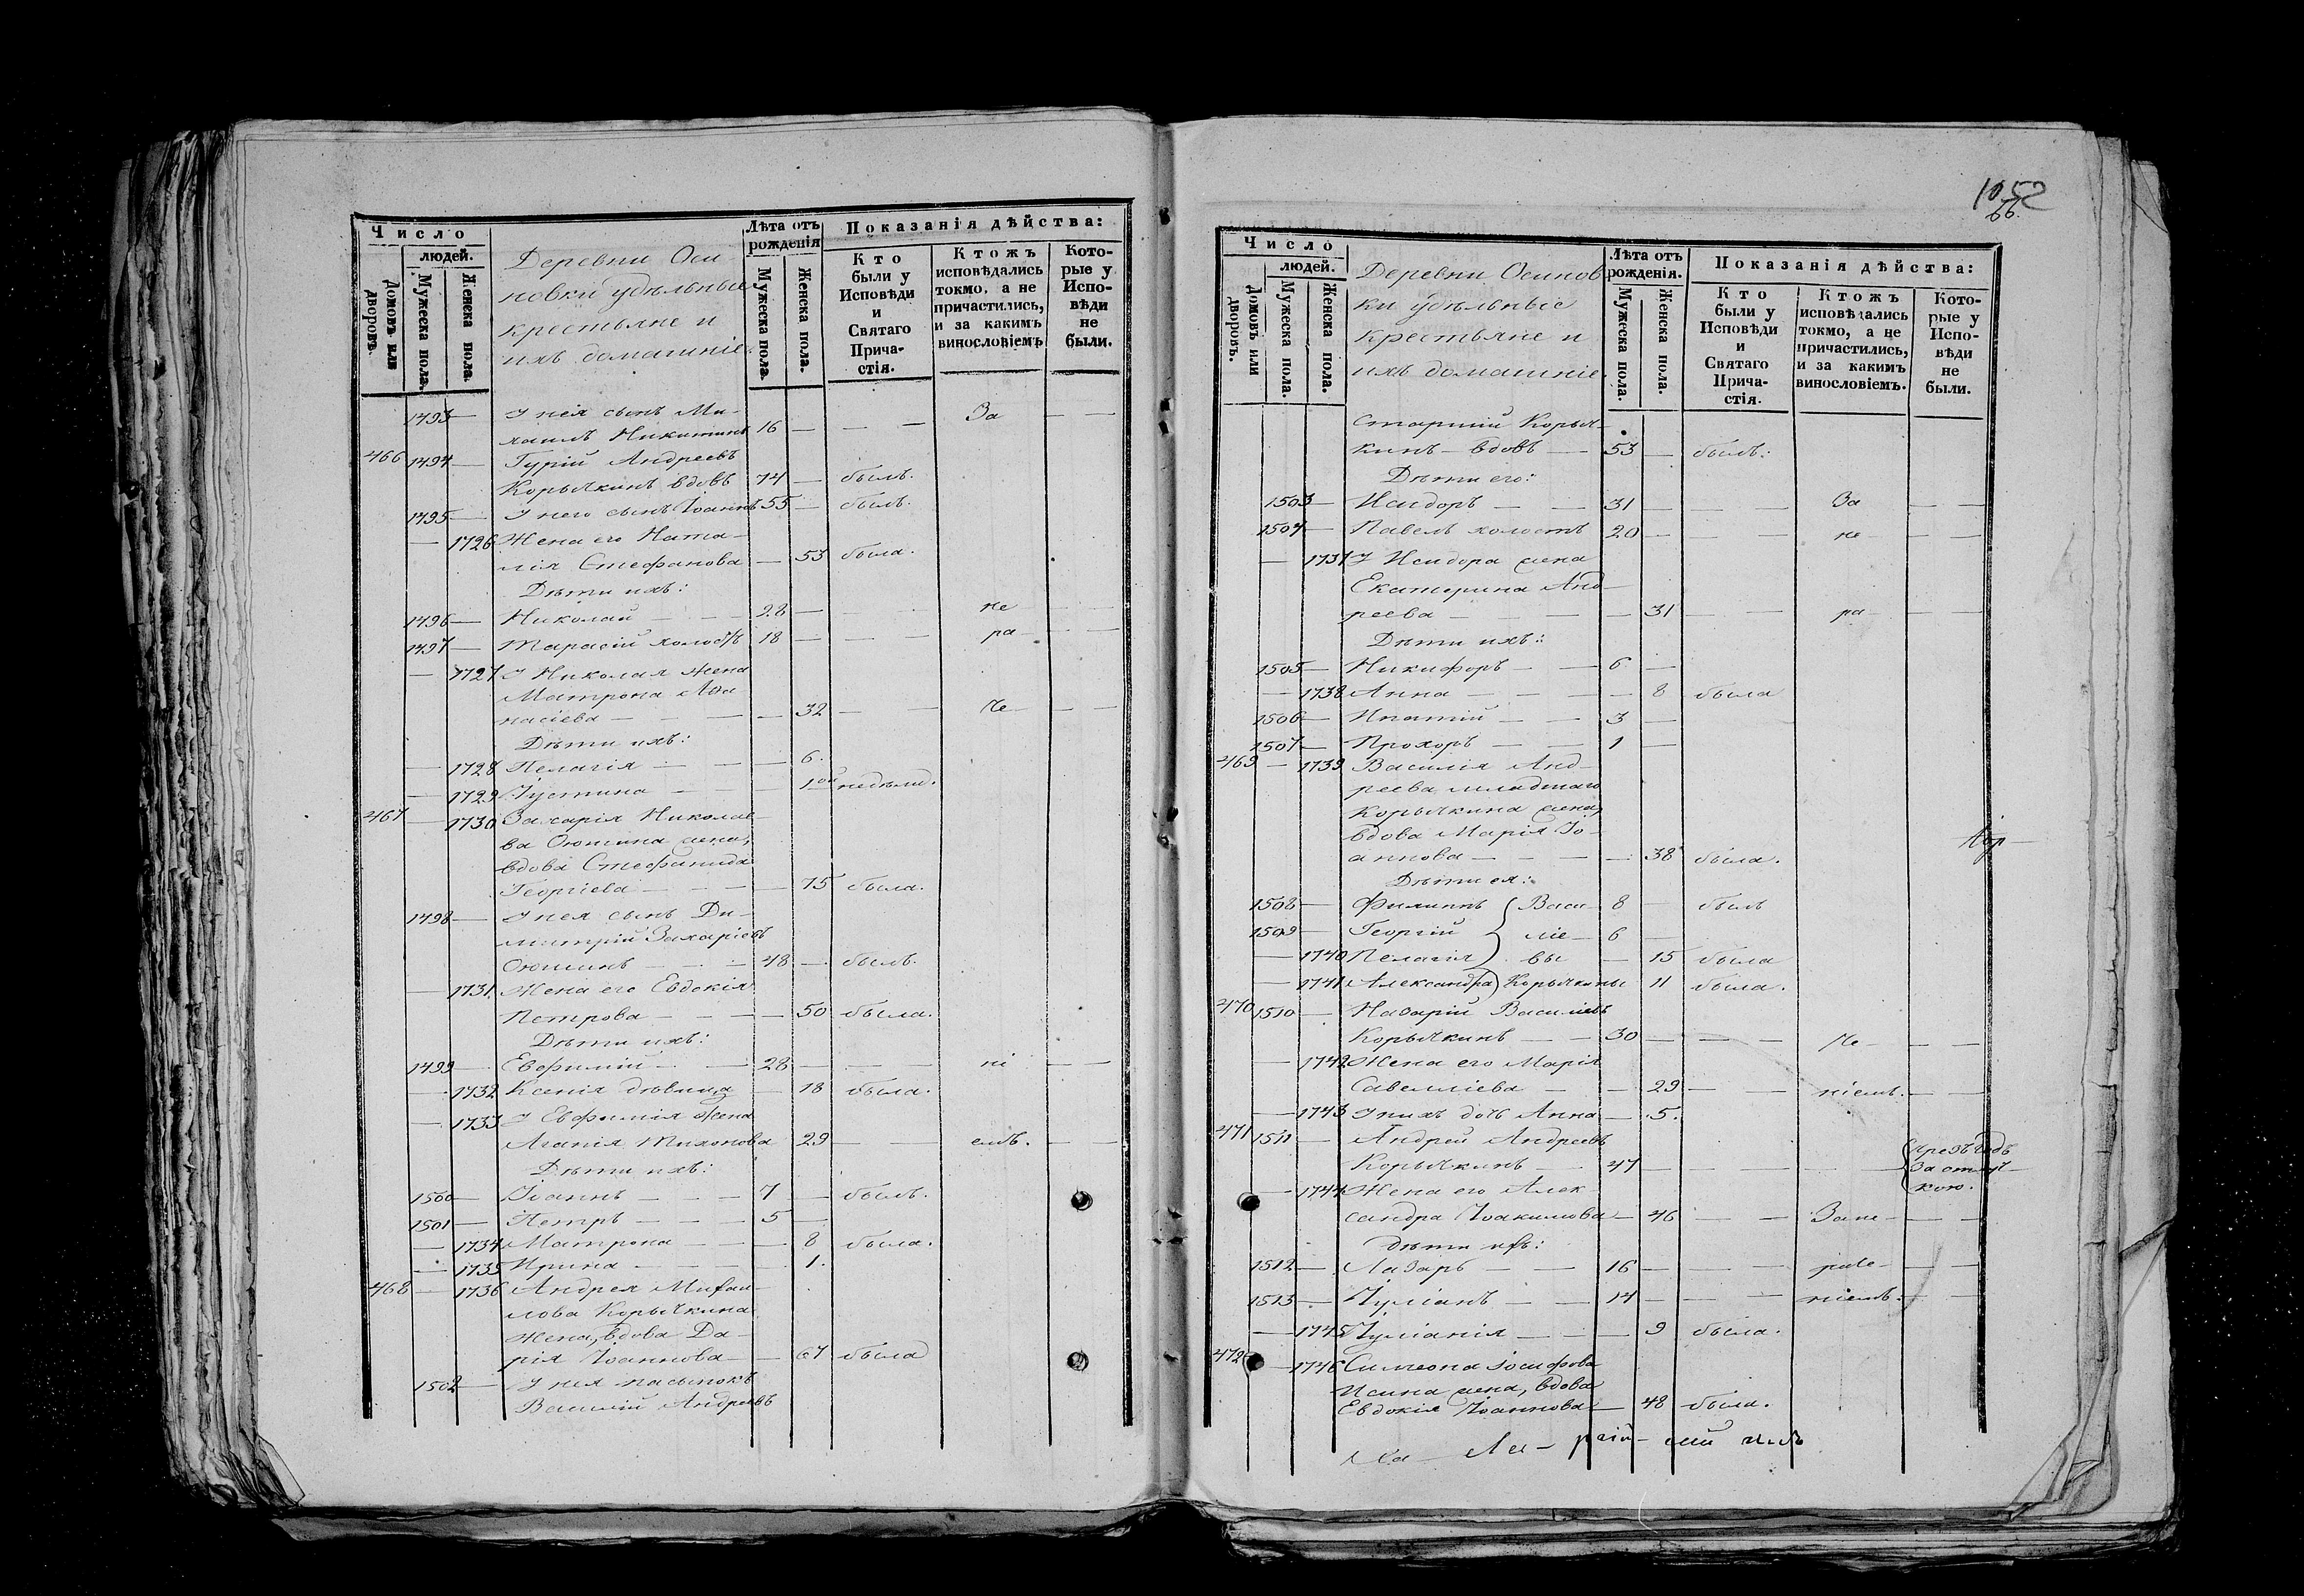 Число
людей.
Домовъ или дворовъ.
Мужеска пола.
Женска пола.
Деревни Оси-
новки удѣльные
крестьяне и
ихъ домашніе
Лѣта отъ
рожденія
Мужеска пола.
Женска пола.
Показанія дѣйства:
Кто
были у
Исповѣди
и
Святаго
Прича-
стія.
Ктожъ
исповѣдались
токмо, а не
причастились,
и за какимъ
винословіемъ
Кото-
рые у
Испо-
вѣди
не
были.
1493 — У нея сынъ Ми- За — —
хаилъ Никитинъ 16 — — —
466 1494 — Гурій Андреевъ
Корычкинъ вдовъ 74 — былъ.
1495 — У него сынъ Іоаннъ 55 — былъ.
— 1726 Жена его Ната-
лія Стефанова — 53 была.
Дѣти ихъ:
1496 — Николай — — 28 — — — не — —
1497 — Тарасій холостъ 18 — — — ра — —
— 1727 У Николая жена
Матрона Аѳа
насіева — — — — 32 — — че — —
Дѣти ихъ:
— 1728 Пелагія — — — 6.
— 1729 Іустина — — 1ой недѣли.
467 — 1730 Захарія Николае-
ва Оюшина жена,
вдова Стефанида
Георгіева — — — 75 была.
1498 — У нея сынъ Ди-
митрій Захаріевъ
Оюшинъ — — — 48 — былъ.
— 1731 Жена его Евдокія
Петрова — — — 50 была.
Дѣти ихъ:
1499 — Евфимій — — 28 — — — ні — —
— 1732 Ксенія дѣвица — 18 была.
— 1733 У Евфимія жена
Агапія Тихонова 29 — — емъ. — —
Дѣти ихъ:
1500 — Іоаннъ — — — 7 — былъ.
1501 — Петръ — — — 5 —
— 1734 Матрона — — — 8 была.
— 1735 Ирина — — — 1.
468 — 1736 Андрея Михаи-
лова Корычкина
жена, вдова Да-
рія Іоаннова — — 67 была
1502 — У нея пасынокъ
Василій Андреевъ
1052
66.
Число
людей.
Домовъ или дворовъ.
Мужеска пола.
Женска пола.
Деревни Осинов
ки удѣльные
крестьяне и
ихъ домашніе.
Лѣта отъ
рожденія.
Мужеска пола.
Женска пола.
Показанія дѣйства:
Кто
были у
Исповѣди
и
Святаго
Прича-
стія.
Ктожъ
исповѣдались
токмо, а не
причастились,
и за какимъ
винословіемъ.
Кото-
рые у
Испо-
вѣди
не
были.
Старшій Корыч-
кинъ — вдовъ — 53 — былъ.
Дѣти его:
1503 — Исидоръ — — 31 — — — За — —
1504 — Павелъ холостъ 20 — — — не — —
— 1737 У Исидора жена
Екатерина Анд-
реева — — — — 31 — — ра — —
Дѣти ихъ:
1505 — Никифоръ — — 6 —
— 1738 Анна — — — — 8 была
1506 — Ипатій — — 3 —
1507 — Прохоръ — — 1 —
469 — 1739 Василія Анд-
реева младшаго
Корычкина жена,
вдова Марія Іо-
аннова — — — — 38 была.
Дѣти ея:
1508 — Филиппъ Васи- 8 — былъ
1509 — Георгій ліе- 6 —
— 1740 Пелагія вы — 15 была
— 1741 Александра Корычкины 11 была.
470 1510 — Назарій Василіевъ
Корычкинъ — — 30 — — — че — —
— 1742 Жена его Марія
Савелліева — — 29 — — ніемъ. — —
— 1743 У нихъ дочь Анна — 5.
471 1511 — Андрей Андреевъ
Корычкинъ — 47 — — — — Чрезъ годъ
За отлуч-
кою.
— 1744 Жена его Алек-
сандра Іоакимова — 46 — — Зане — — —
дѣти ихъ:
1512 — Лазарь — — 16 — — — раче — — —
1513 — Іуліанъ — — 14 — — — ніемъ. — —
— 1745 Іуліанія — — — 9 была.
472 — 1746 Симеона Іосифова
Исина жена, вдова
Евдокія Іоаннова — 48 была.